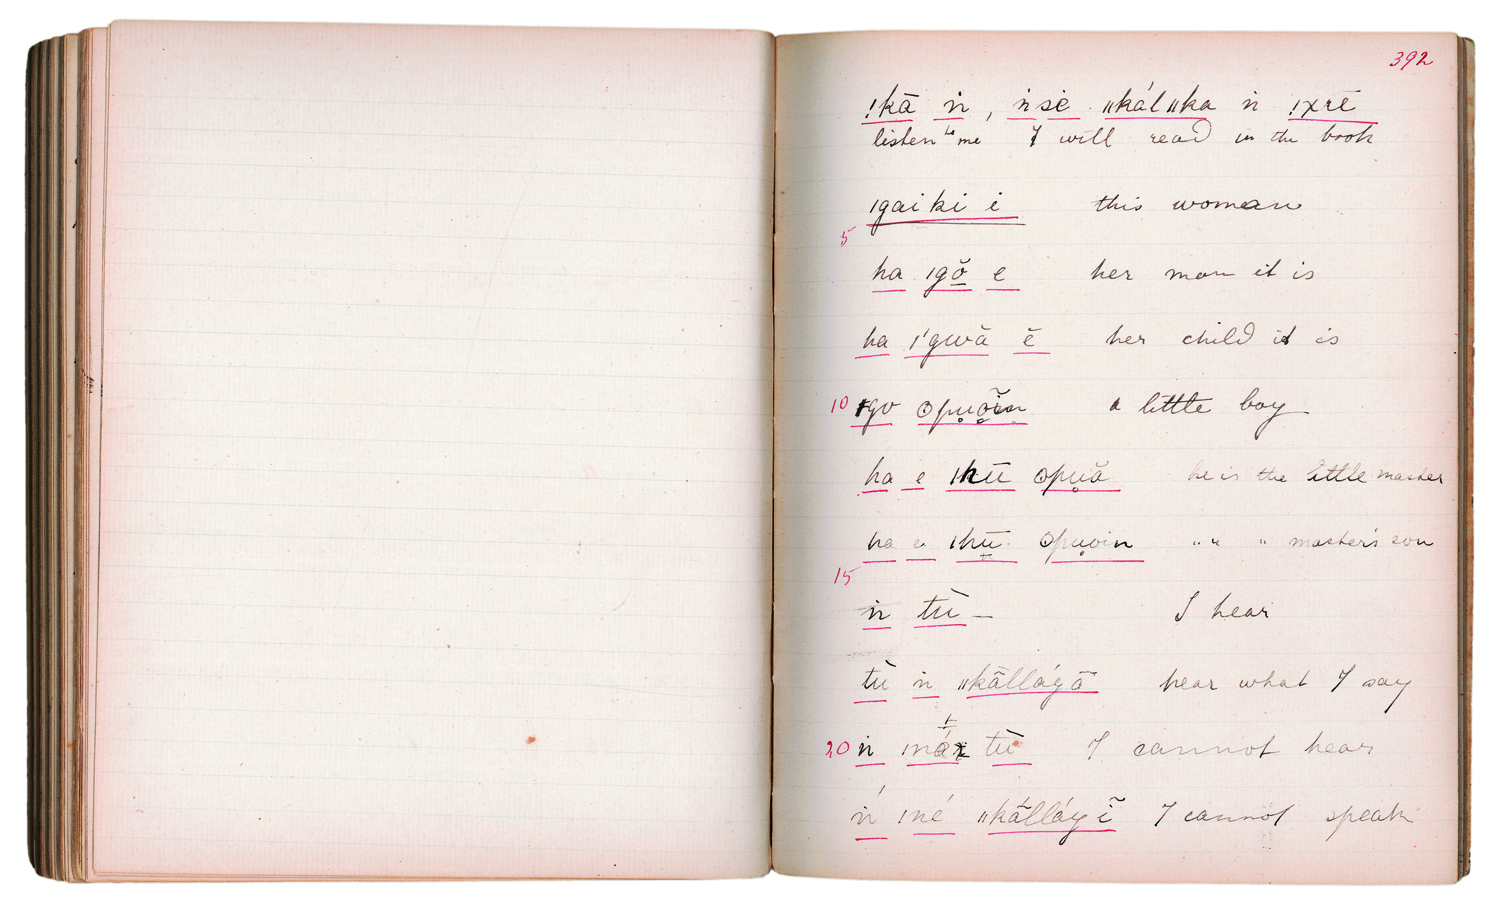 392
!kā ṅ, ṅ sė ǁkálǁka ṅ !xrē
listen to me I will read in the book
ǀgaiki ė this woman
5
ha ǀgŏ e her man it is
ha ǀ'gwă ĕ her child it is
10 ǀgo ʘpu̥o̥ĩn a little boy
ha e ǀhū ʘpu̥ă he is the little master
ha e ǀhū ʘpu̥oin " " " master's son
15
ṅ tū — I hear
tù ṅ ǁkālláȳā hear what I say
20 ṅ ǀná tù I cannot hear
ṅ́ ǀné ǁkālláyĩ I cannot speak